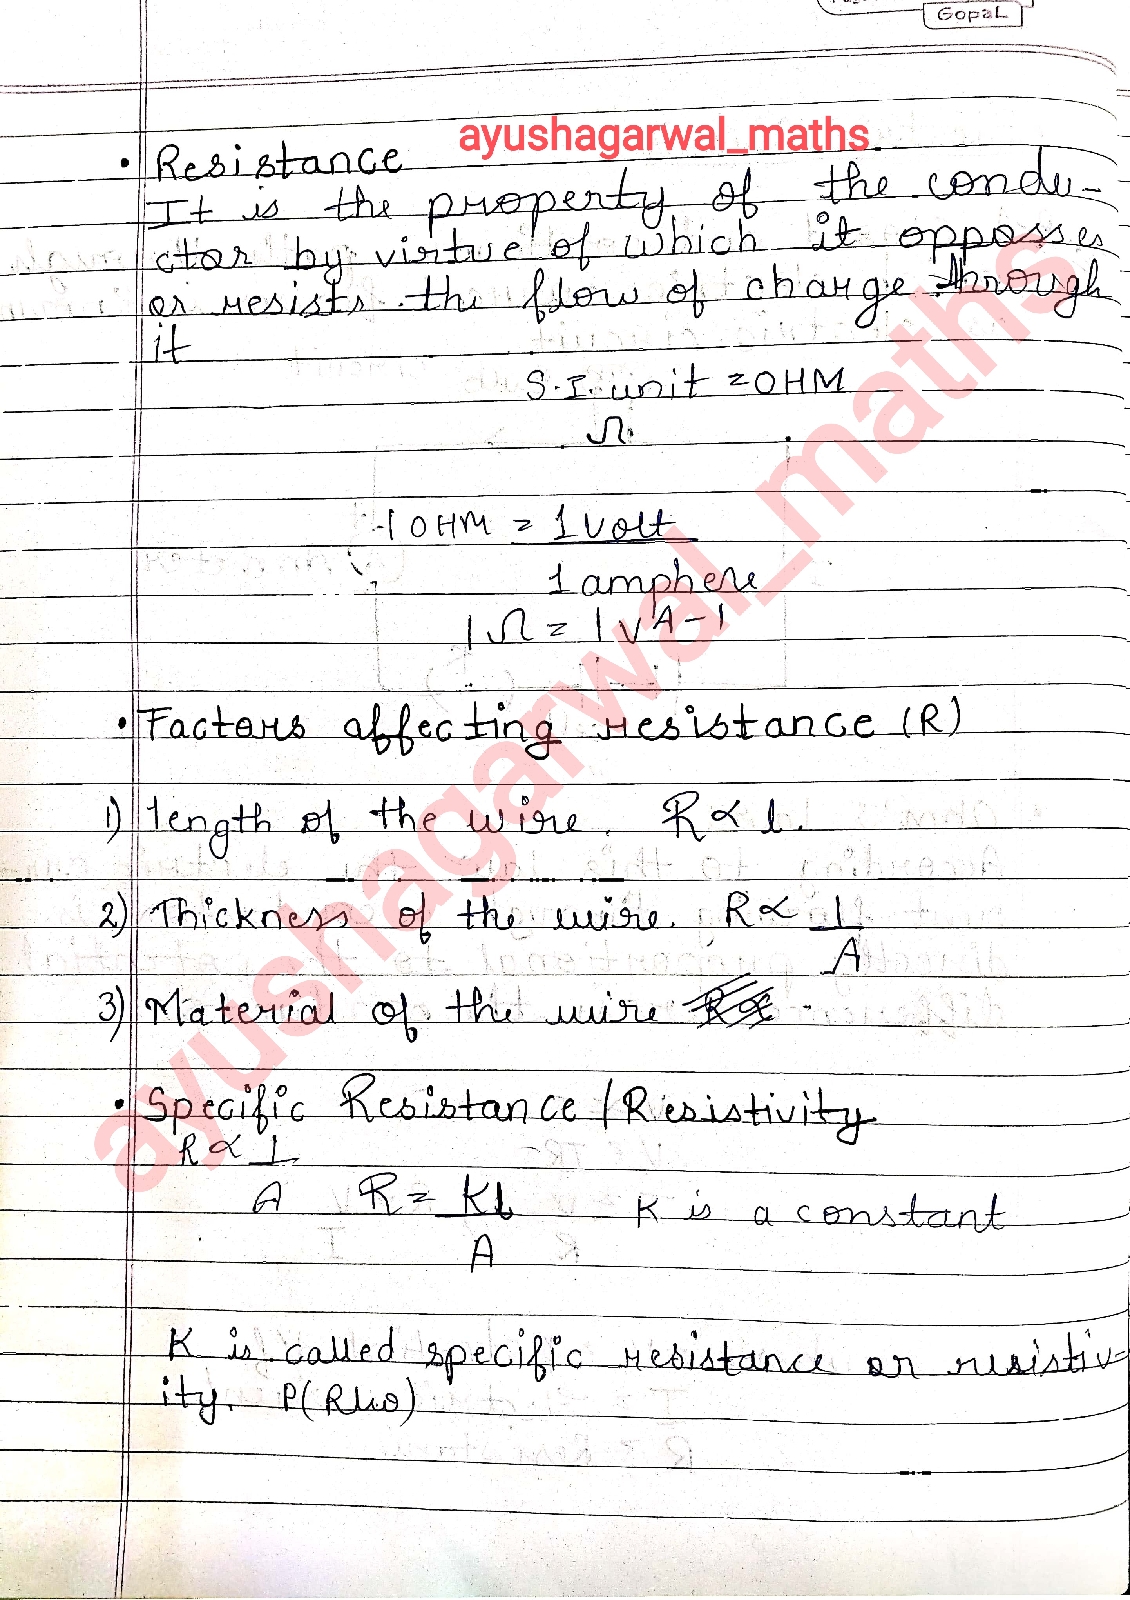 GopaL
ayushagarwal_maths
• Resistance
It is the property of the condu-
ctor by virtue of which it opposses
or resists the flow of charge through
it
S.I. unit = OHM
Ω
1 OHM = 1 Volt
1 amphere
1Ω = 1 V A-1
• Factors affecting resistance (R)
1) length of the wire. R ∝ l.
2) Thickness of the wire. R ∝ 1
A
3) Material of the wire
• Specific Resistance / Resistivity
R ∝ 1
A R = Kl K is a constant
A
K is called specific resistance or resistiv-
ity. P(Rho)
ayushagarwal_maths